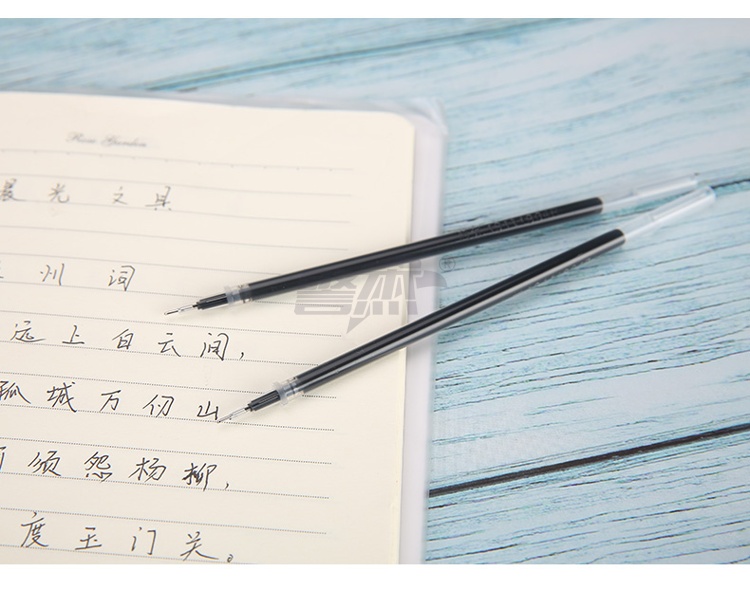 Rose Garden
晨光 文具
州词
远上白云间,
孤城万仞山
须怨杨柳,
度玉门关。
警杰®